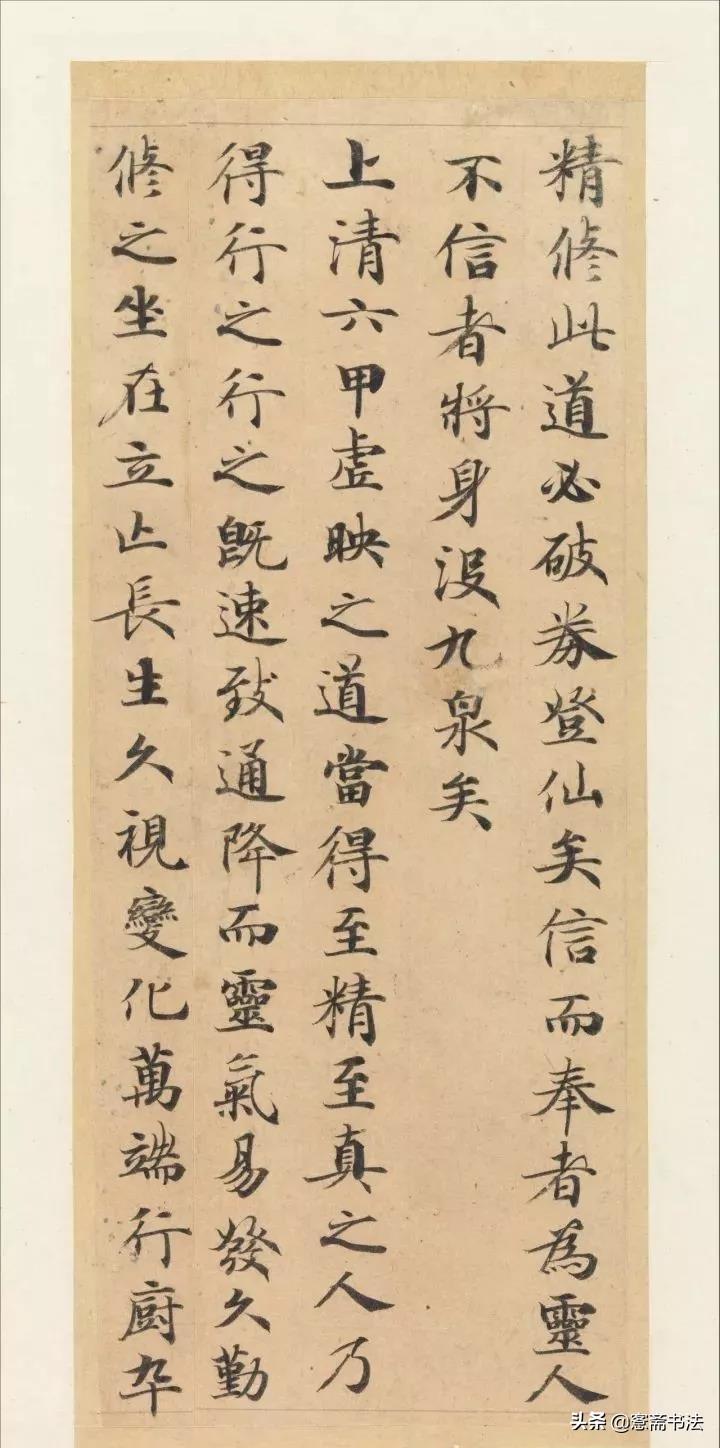 精修此道必破券登仙矣信而奉者為靈人
不信者將身没九泉矣
上清六甲虛映之道當得至精至真之人乃
得行之行之既速致通降而靈氣易發久勤
修之坐在立亡長生久視變化萬端行廚卒
头条@寋斋书法